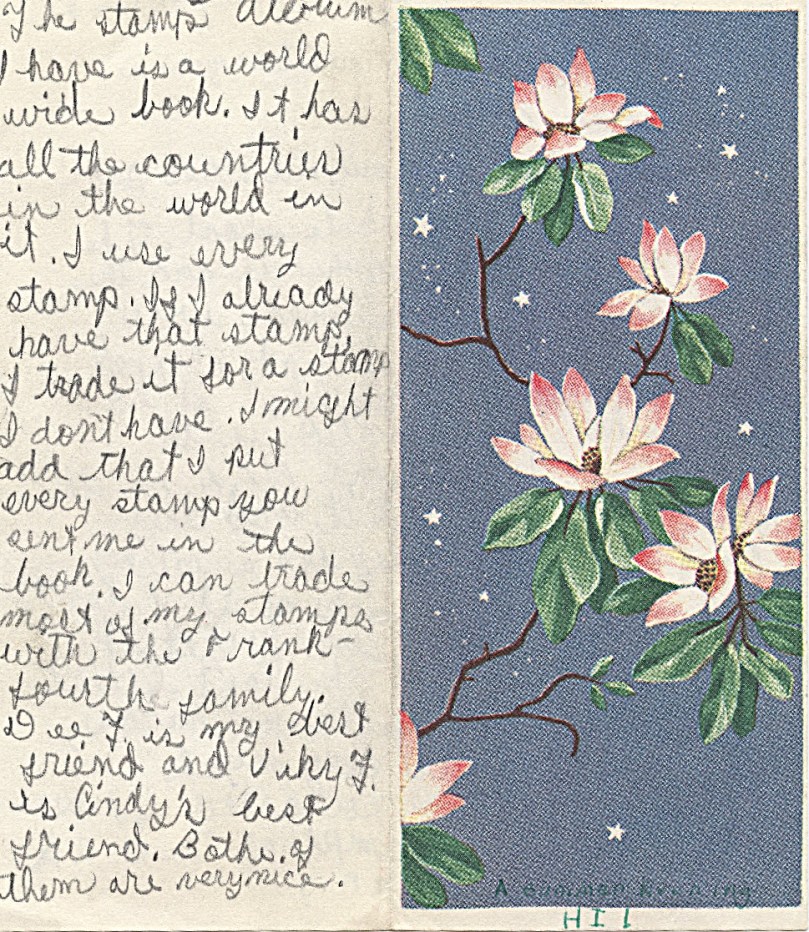 The stamp album
I have is a world
wide book. It has
all the countries
in the world in
it. I use every
stamp. If I already
have that stamp,
I trade it for a stamp
I don't have. I might
add that I put
every stamp you
sent me in the
book. I can trade
most of my stamps
with the Frank-
fourth family.
Dee F. is my best
friend and Viky F.
is Cindy's best
friend. Bothe of
them are very nice.
A summer Evening
HI!